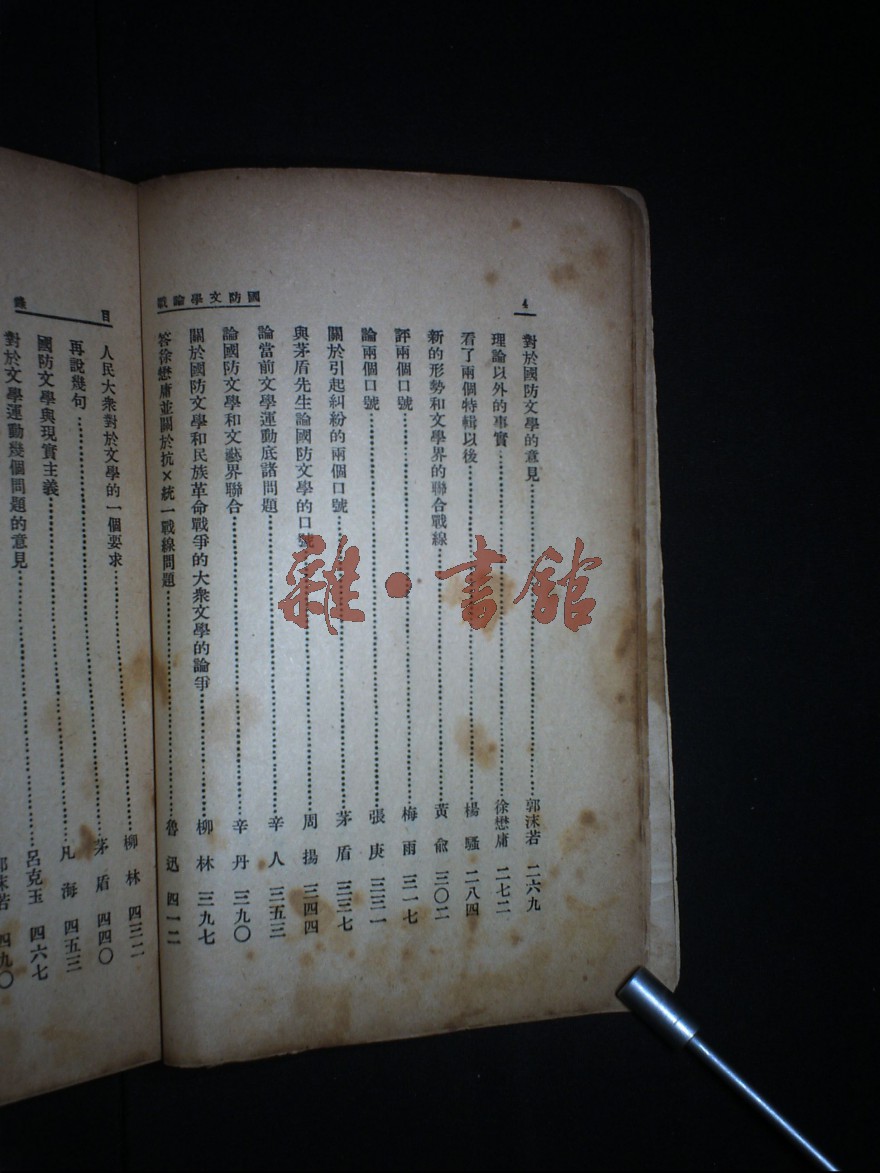 4
國防文學論戰
對於國防文學的意見 郭沫若 二六九
理論以外的事實 徐懋庸 二七二
看了兩個特輯以後 楊騷 二八四
新的形勢和文學界的聯合戰線 黃俞 三〇二
評兩個口號 梅雨 三一七
論兩個口號 張庚 三三一
關於引起糾紛的兩個口號 茅盾 三三七
與茅盾先生論國防文學的口號 周揚 三四四
論當前文學運動底諸問題 辛人 三五三
論國防文學和文藝界聯合 辛丹 三九〇
關於國防文學和民族革命戰爭的大衆文學的論爭 柳林 三九七
答徐懋庸並關於抗×統一戰線問題 魯迅 四一二
目錄
人民大衆對於文學的一個要求 柳林 四三二
再說幾句 茅盾 四四〇
國防文學與現實主義 凡海 四五三
對於文學運動幾個問題的意見 呂克玉 四六七
郭沫若 四九〇
雜·書館